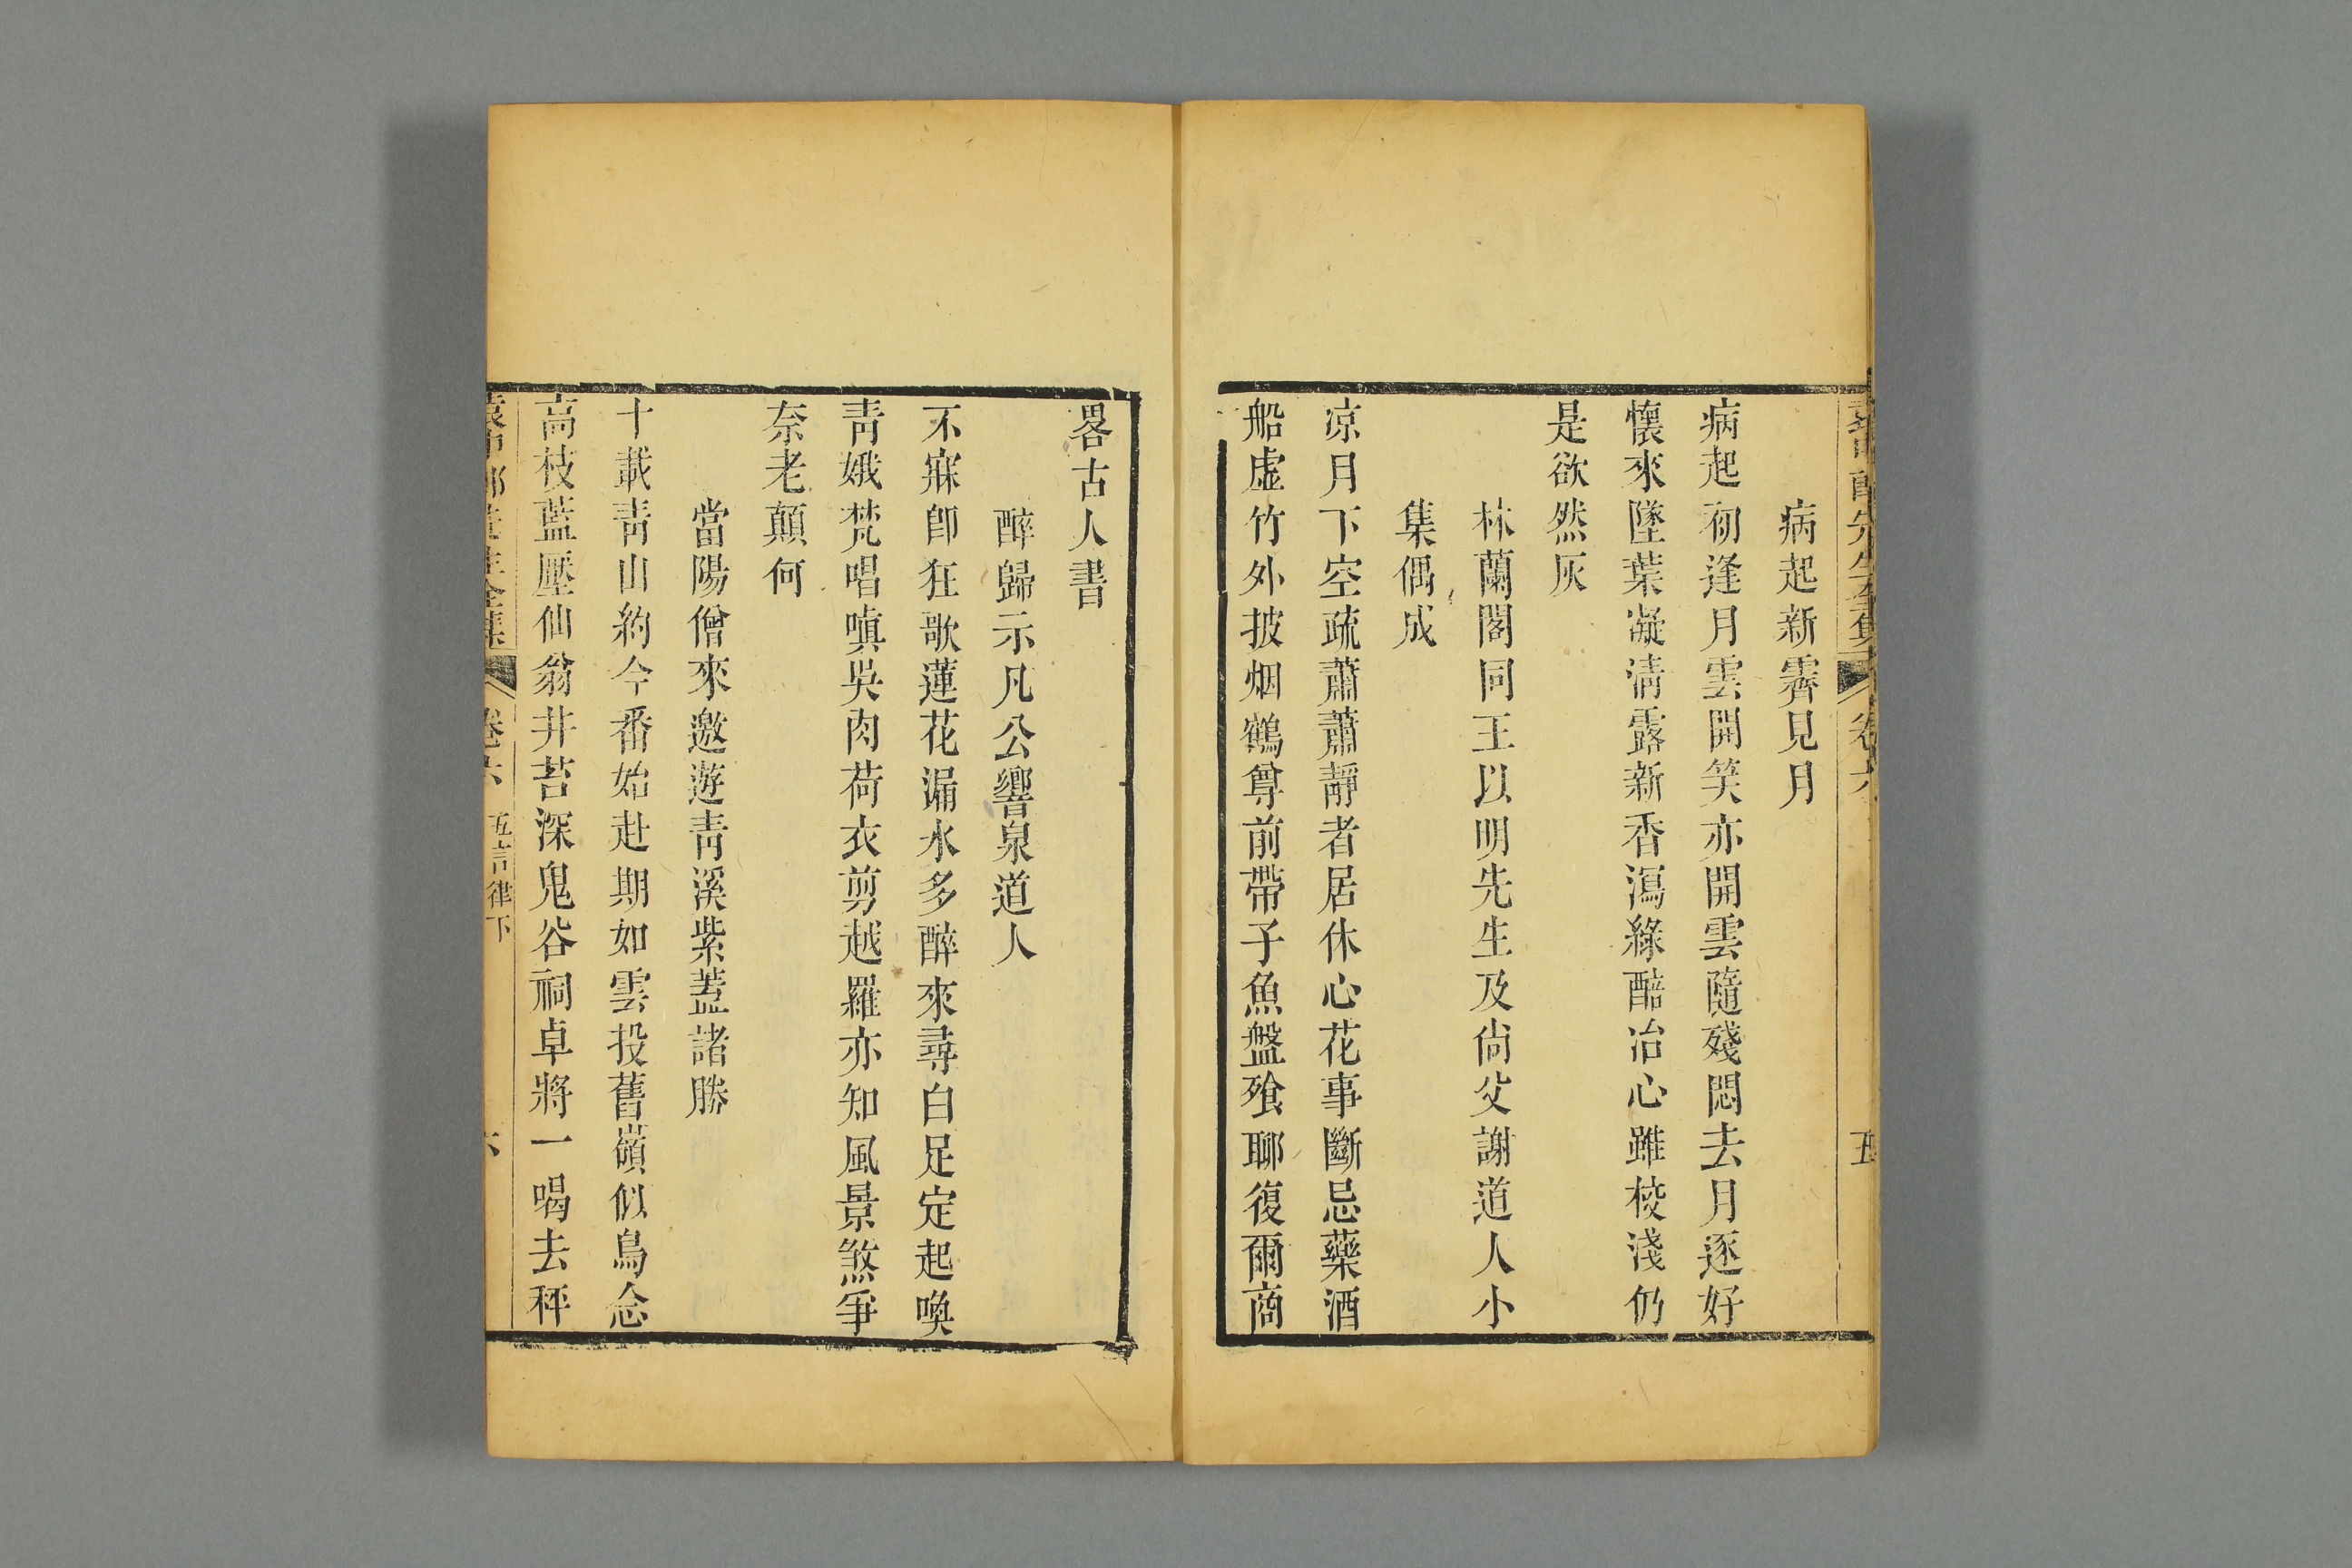 病起新霽見月
病起初逢月雲開笑亦開雲隨殘悶去月逐好
懷來墜葉凝清露新香瀉綠醅冶心雖校淺仍
是欲然灰
林蘭閣同王以明先生及尙父謝道人小
集偶成
凉月下空疏蕭蕭靜者居休心花事斷忌藥酒
船虛竹外披烟鶴尊前帶子魚盤飱聊復爾商
畧古人書
醉歸示凡公響泉道人
不寐卽狂歌蓮花漏水多醉來尋白足定起喚
靑娥梵唱嗔吳肉荷衣剪越羅亦知風景煞爭
奈老顛何
當陽僧來邀遊靑溪紫蓋諸勝
十載靑山約今番始赴期如雲投舊嶺似鳥念
高枝藍壓仙翁井苔深鬼谷祠卓將一喝去秤
卷六 五言律下